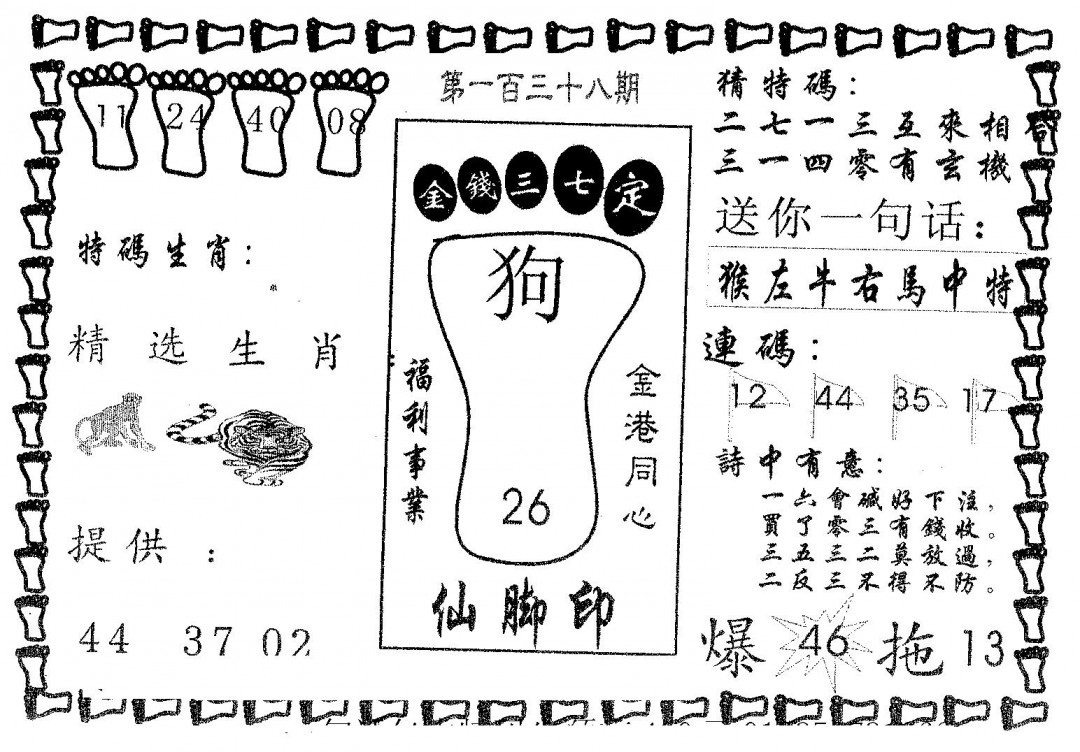 第一百三十八期
11 24 40 08
特碼生肖：
精选生肖
提供：
44 37 02
金錢三七定
狗
福利事業
金港同心
26
仙脚印
猜特碼：
二七一三五來相合
三一四零有玄機
送你一句话：
猴左牛右馬中特
連碼：
12 44 35 17
詩中有意：
一六會碱好下注，
買了零三有錢收。
三五三二莫放過，
二反三不得不防。
爆 46 拖 13